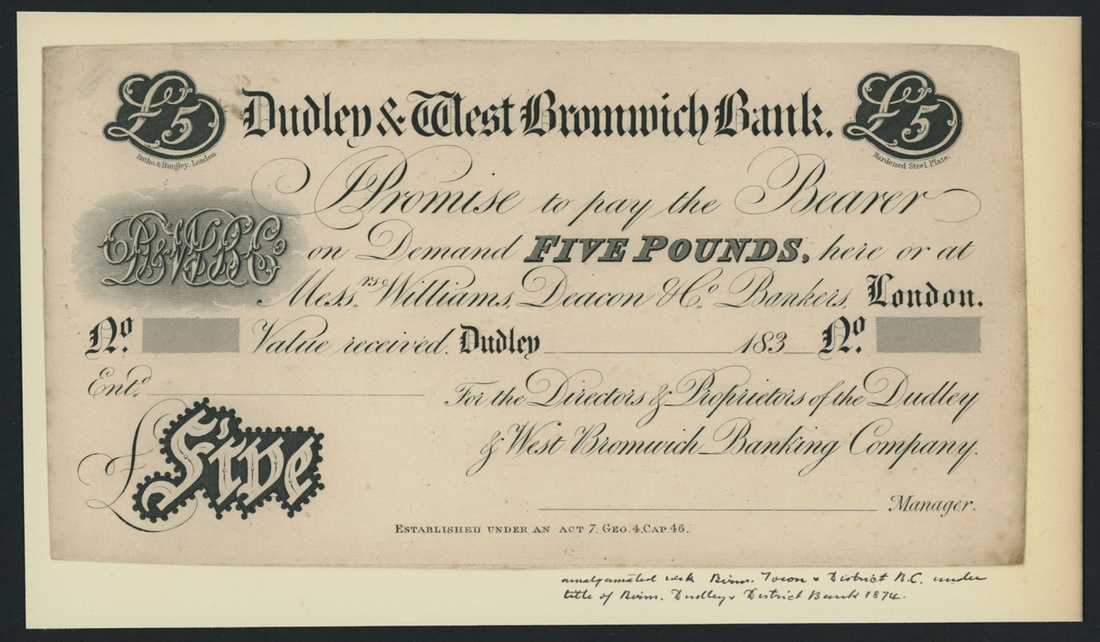 £5 Dudley & West Bromwich Bank. £5
Batho & Bingley, London. Hardened Steel Plate.
I Promise to pay the Bearer
on Demand FIVE POUNDS, here or at
D&WBBC
Messrs. Williams, Deacon & Co. Bankers, London.
No. Value received. Dudley 183 No.
Entd.
For the Directors & Proprietors of the Dudley
& West Bromwich Banking Company.
£ Five
Manager.
ESTABLISHED UNDER AN ACT 7, GEO. 4, CAP. 46.
amalgamated with Birm. Town & District B.C. under
title of Birm. Dudley & District Bank 1874.